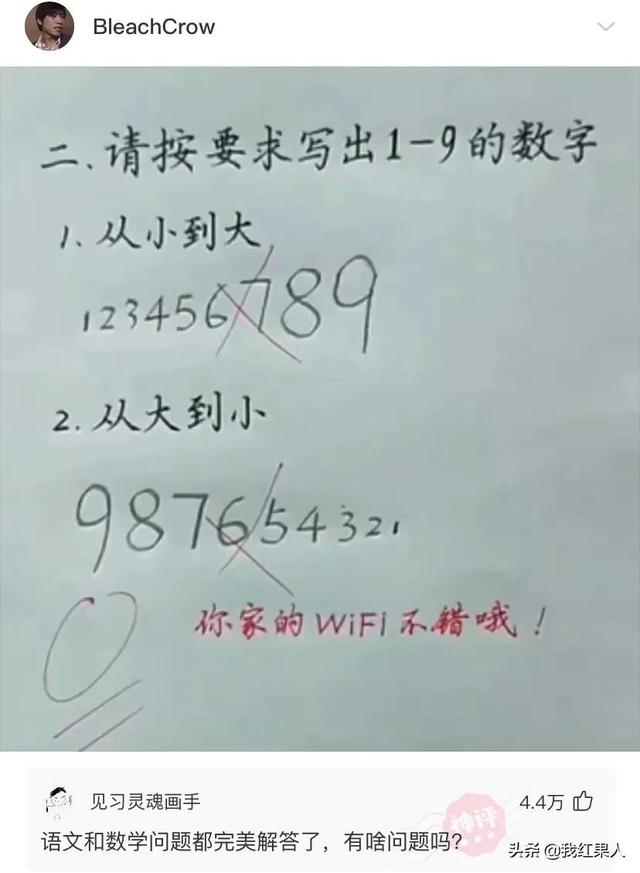 BleachCrow
二、请按要求写出1-9的数字
1. 从小到大
123456789
2. 从大到小
987654321
0
你家的WiFi不错哦！
见习灵魂画手
4.4万
语文和数学问题都完美解答了，有啥问题吗?
神评
头条 @我红果人